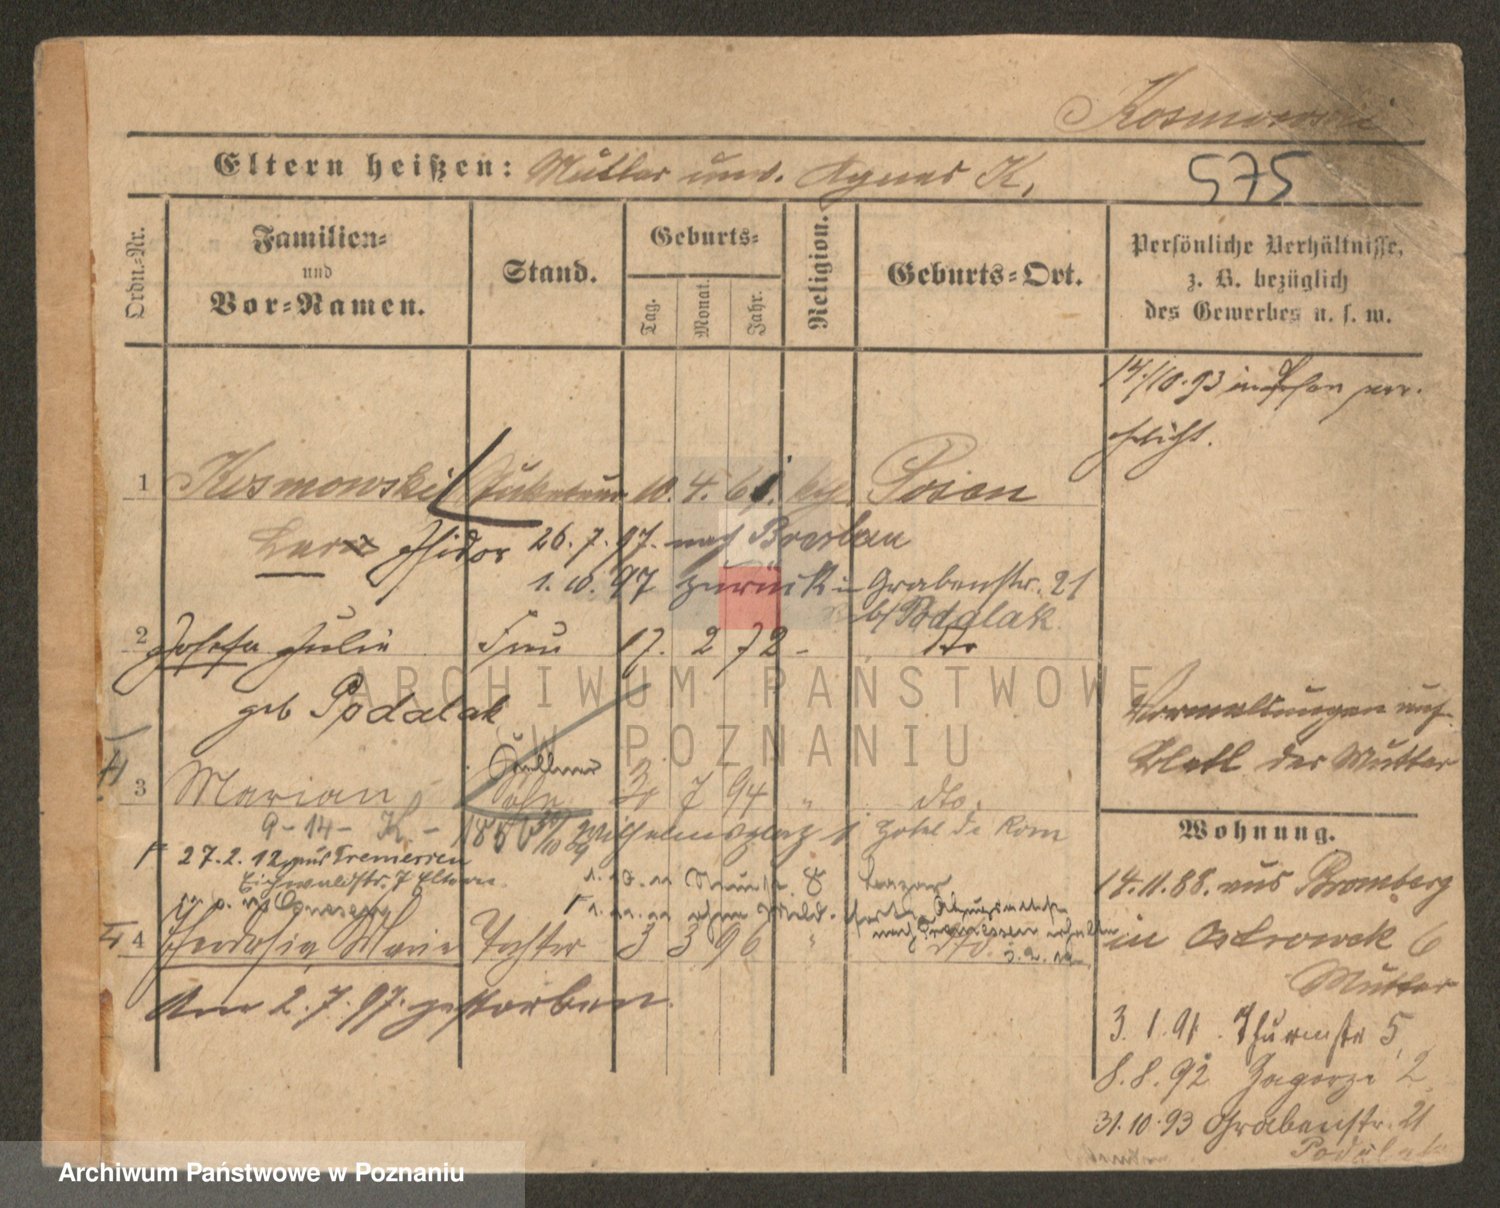 Kosmowski
Eltern heißen: Mutter unv. Agnes K.
575
Ordn.-Nr.
Familien-
und
Vor-Namen.
Stand.
Geburts-
Tag.
Monat.
Jahr.
Religion.
Geburts-Ort.
Persönliche Verhältnisse,
z. B. bezüglich
des Gewerbes u. s. w.
14./10.93 in Posen ver-
ehlicht.
1 Kosmowski 10. 4. 61. kth. Posen
Isidor 26.7.97. nach Breslau
1.10.97 zurück Grabenstr. 21
b/ Podalak
2 Josefa Julie Frau 17. 2 72 - dto
geb Podalak
Vermeldungen auf
Blatt der Mutter
3 Marian Sohn 3 7 94 " dto.
9-14- K.- Wilhelmsplatz 1 Hotel de Rom
27.2.12 aus Tremessen
Eichwaldstr. 7 Eltern
nach Tremessen
3.2.12
4 Theodosia Marie Tochter 3 3 96 " dto.
Am 2.7.97. gestorben.
Wohnung.
14.11.88. aus Bromberg
in Ostrowek 6
Mutter
3.1.91. Thurmstr 5
8.8.92 Zagorze 2
31.10.93 Grabenstr. 21
Podalak
ARCHIWUM PAŃSTWOWE
W POZNANIU
Archiwum Państwowe w Poznaniu